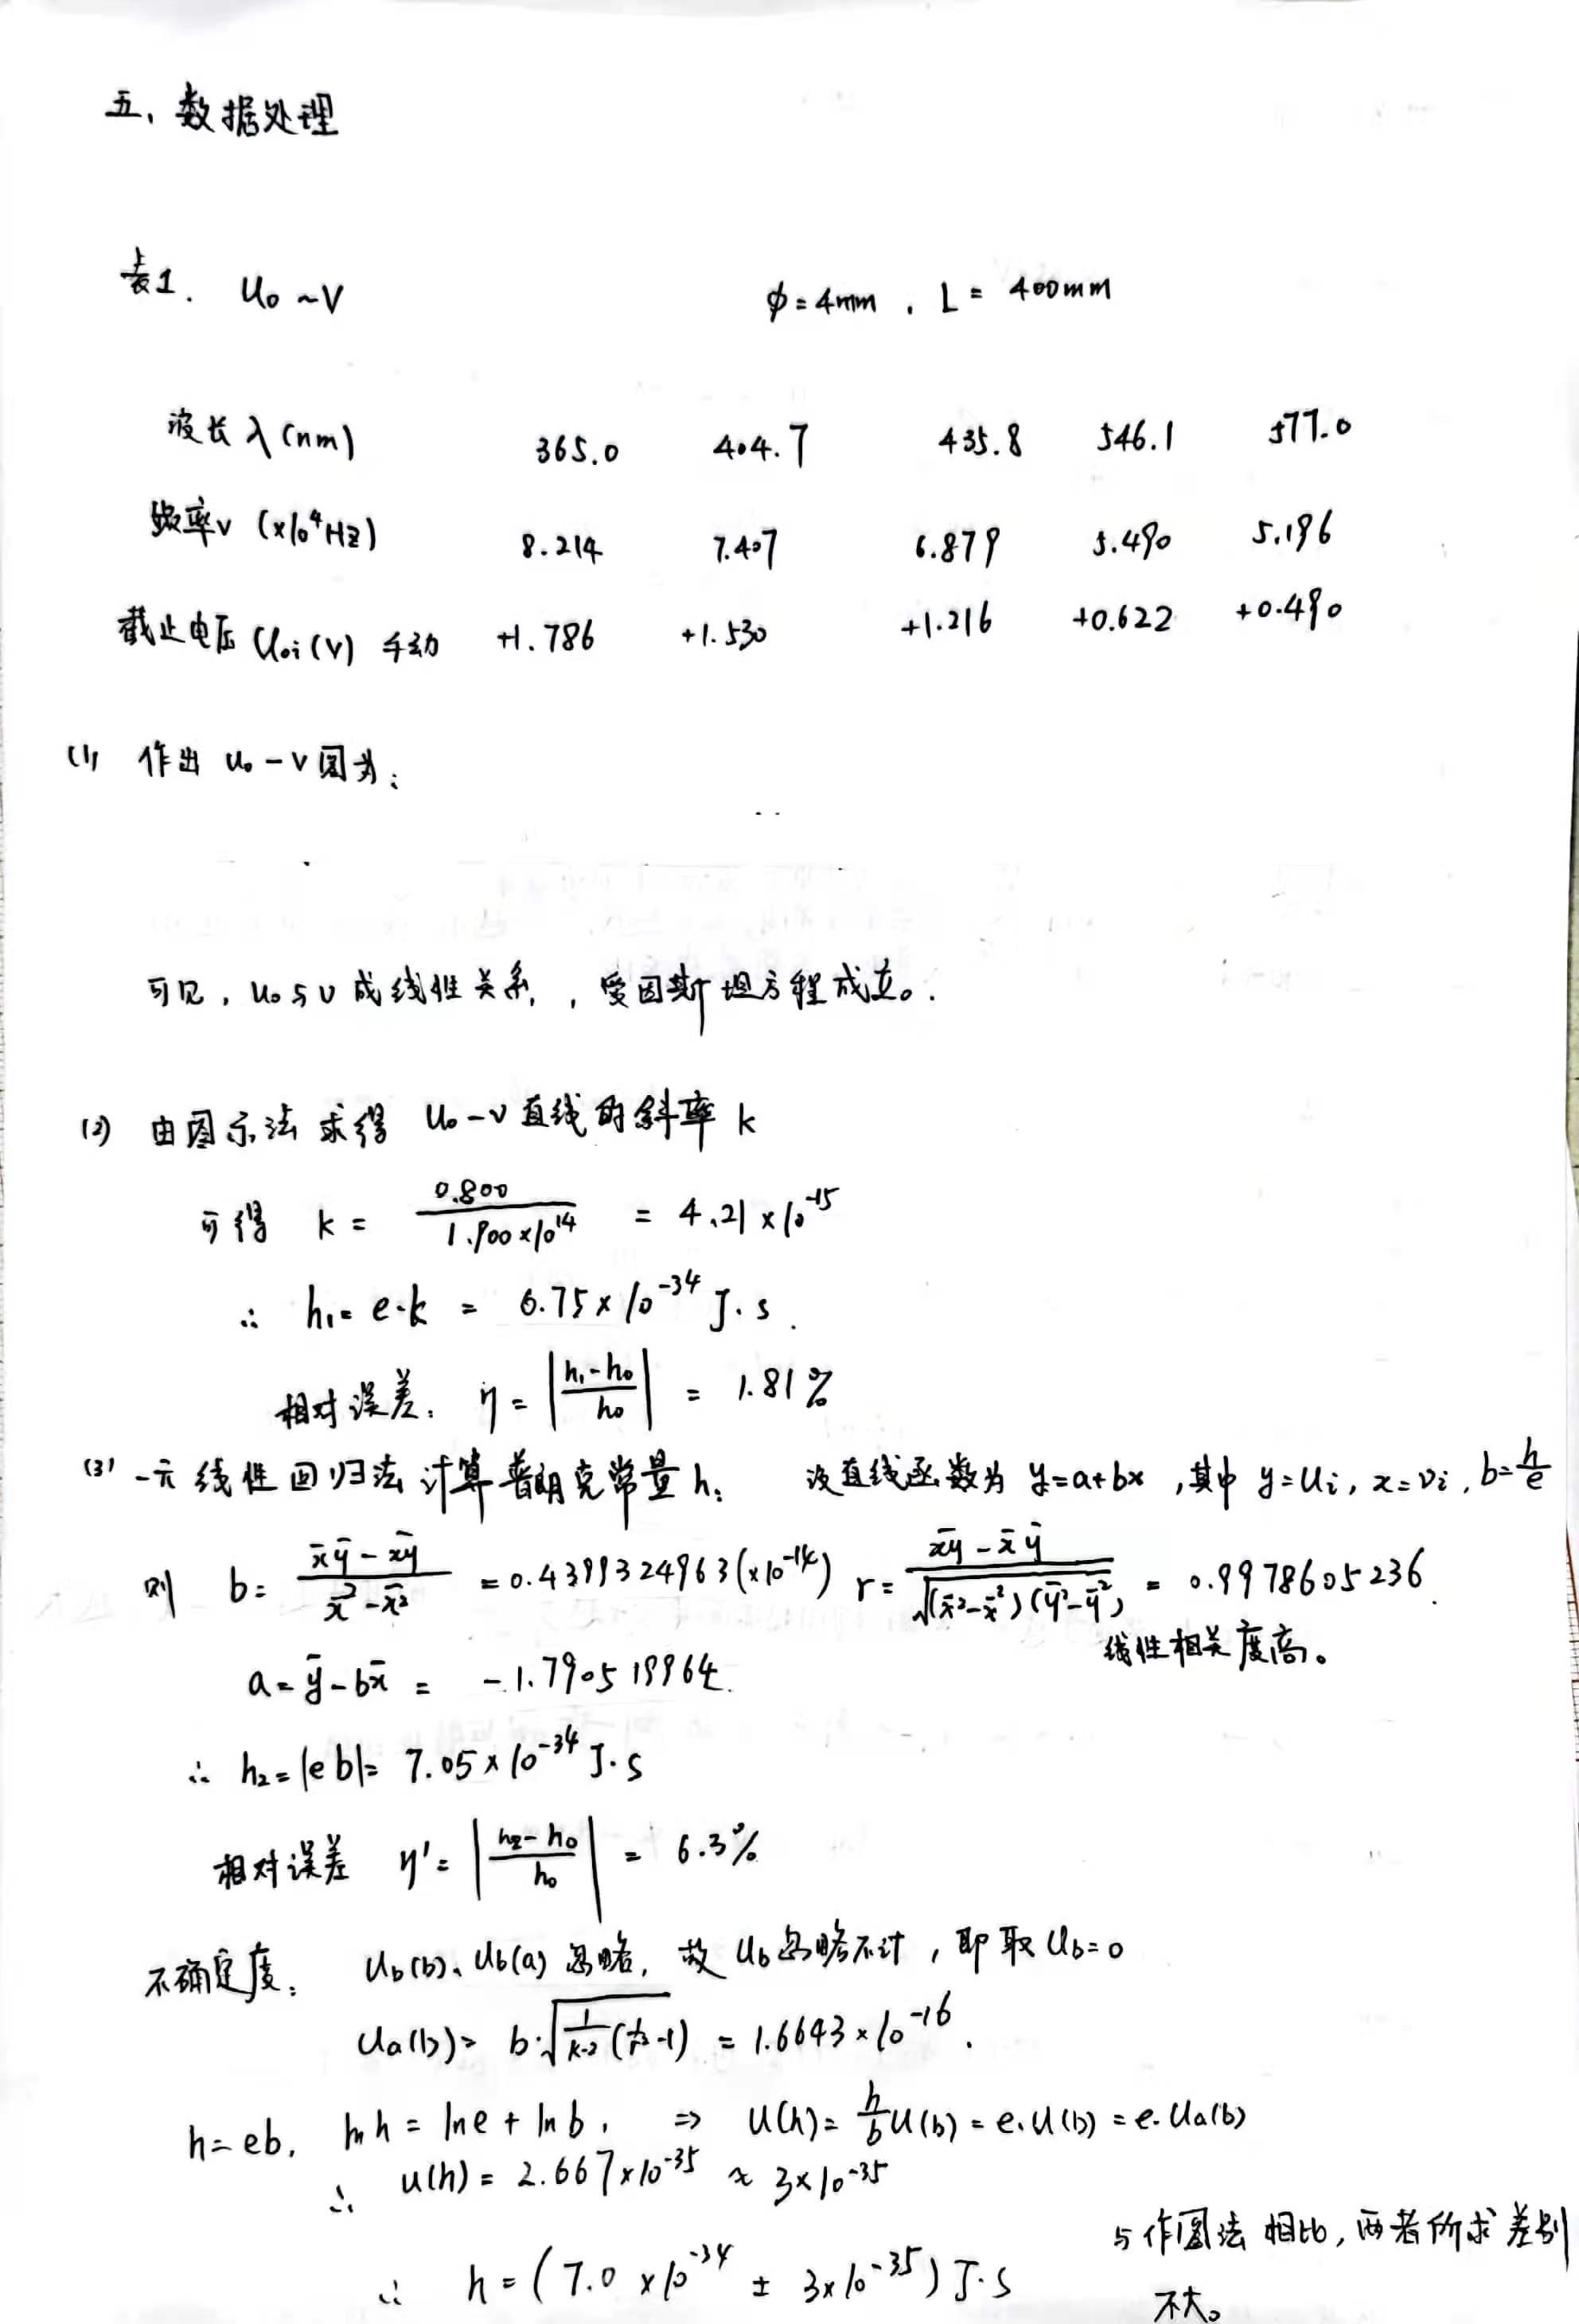 五、数据处理
表1. U₀~ν φ=4mm , L= 400mm
波长λ(nm) 365.0 404.7 435.8 546.1 577.0
频率ν (×10⁴Hz) 8.214 7.407 6.879 5.490 5.196
截止电压U₀ᵢ(V) 手动 +1.786 +1.530 +1.216 +0.622 +0.490
(1) 作出 U₀-ν图为:
可见, U₀与ν成线性关系, 爱因斯坦方程成立。
(2) 由图示法求得 U₀-ν直线的斜率 k
可得 k = 0.800/(1.900×10¹⁴) = 4.21×10⁻¹⁵
∴ h₁=e·k = 6.75×10⁻³⁴ J·s.
相对误差: η = |(h₁-h₀)/h₀| = 1.81%
(3) 一元线性回归法计算普朗克常量h: 设直线函数为 y=a+bx ,其中 y=Uᵢ, x=νᵢ, b=h/e
则 b= (x̄ȳ-x̄ȳ)/(x̄²-x̄²) =0.4399324963(×10⁻¹⁴) r= (x̄ȳ-x̄ȳ)/√((x̄²-x̄²)(ȳ²-ȳ²)) = 0.9978605236.
线性相关度高。
a=ȳ-bx̄ = -1.790519964.
∴ h₂=|eb|= 7.05×10⁻³⁴ J·s
相对误差 η'= |(h₂-h₀)/h₀| = 6.3%
不确定度: U_b(b)、U_b(a) 忽略, 故U_b忽略不计, 即取U_b=0
Ua(b)= b·√(1/(k-2)(1/r²-1)) = 1.6643×10⁻¹⁶.
h=eb, ln h = ln e + ln b, ⇒ U(h)= h/b U(b) = e·U(b) = e·Ua(b)
∴ u(h) = 2.667×10⁻³⁵ ≈ 3×10⁻³⁵
∴ h=(7.0×10⁻³⁴ ± 3×10⁻³⁵) J·s
与作图法相比,两者所求差别
不大。